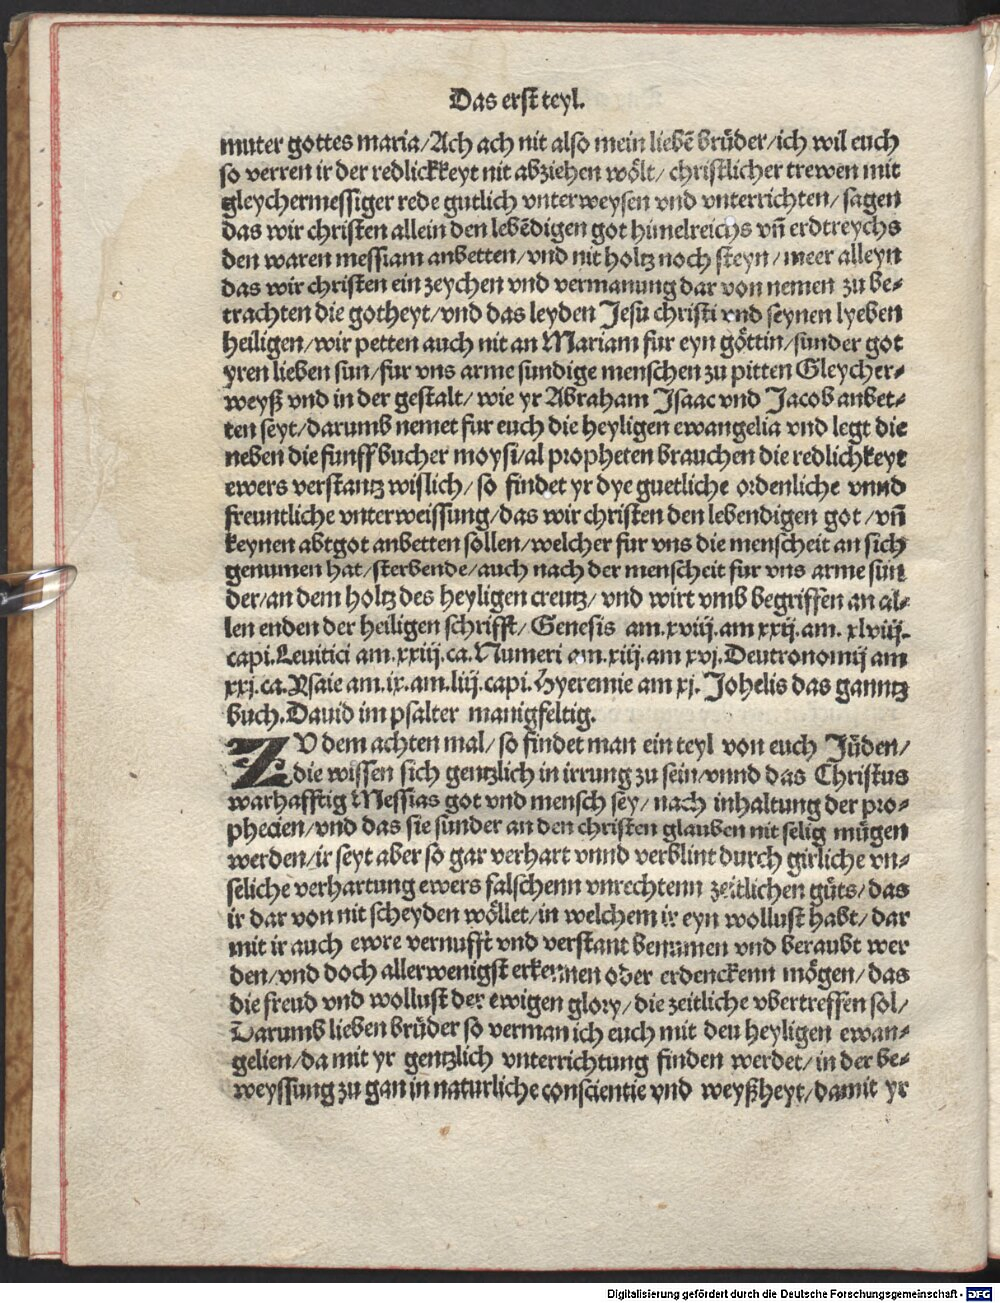 Das erst teyl.
muter gottes maria/Ach ach nit also mein liebē brüder/ich wil euch
so verren ir der redlickkeyt nit abziehen wölt/ christlicher trewen mit
gleychermessiger rede gutlich vnterweysen vnd vnterrichten/ sagen
das wir christen allein den lebēdigen got himelreichs vñ erdtreychs
den waren messiam anbetten/vnd nit holtz noch steyn/meer alleyn
das wir christen ein zeychen vnd vermanung dar von nemen zu be-
trachten die gotheyt/vnd das leyden Jesu christi vnd seynen lyeben
heiligen/wir petten auch nit an Mariam fur eyn göttin/sunder got
yren lieben sun/fur vns arme sundige menschen zu pitten Gleycher-
weyß vnd in der gestalt/ wie yr Abraham Isaac vnd Jacob anbet-
ten seyt/darumb nemet fur euch die heyligen ewangelia vnd legt die
neben die funff bucher moysi/al propheten brauchen die redlichkeyt
ewers verstantz wislich/ so findet yr dye guetliche ordenliche vnnd
freuntliche vnterweissung/das wir christen den lebendigen got /vñ
keynen abtgot anbetten sollen/welcher fur vns die menscheit an sich
genumen hat/sterbende/auch nach der menscheit fur vns arme sün
der/an dem holtz des heyligen creutz/ vnd wirt vmb begriffen an al-
len enden der heiligen schrifft/ Genesis am.xviij.am xxij.am. xlviij.
capi.Levitici am.xxiij.ca.Numeri am.xiij.am xvj.Deutronomij am
xxj.ca.Ysaie am.ix.am.liij.capi.Hyeremie am xj. Johelis das ganntz
buch.Dauid im psalter manigfeltig.
ZV dem achten mal/ so findet man ein teyl von euch Jüden/
die wissen sich gentzlich in irrung zu sein/vnnd das Christus
warhafftig Messias got vnd mensch sey/ nach inhaltung der pro-
phecien/vnd das sie sunder an den christen glauben nit selig mügen
werden/ir seyt aber so gar verhart vnnd verblint durch girliche vn-
seliche verhartung ewers falschenn vnrechtenn zeitlichen güts/das
ir dar von nit scheyden wöllet/in welchem ir eyn wollust habt/ dar
mit ir auch ewre vernufft vnd verstant benumen vnd beraubt wer
den/vnd doch aller wenigst erkennen oder erdenckenn mögen/das
die freud vnd wollust der ewigen glory/die zeitliche vbertreffen sol/
Darumb lieben brüder so verman ich euch mit den heyligen ewan-
gelien/da mit yr gentzlich vnterrichtung finden werdet/in der be-
weyssung zu gan in naturliche conscientie vnd weyßheyt/damit yr
Digitalisierung gefördert durch die Deutsche Forschungsgemeinschaft - DFG